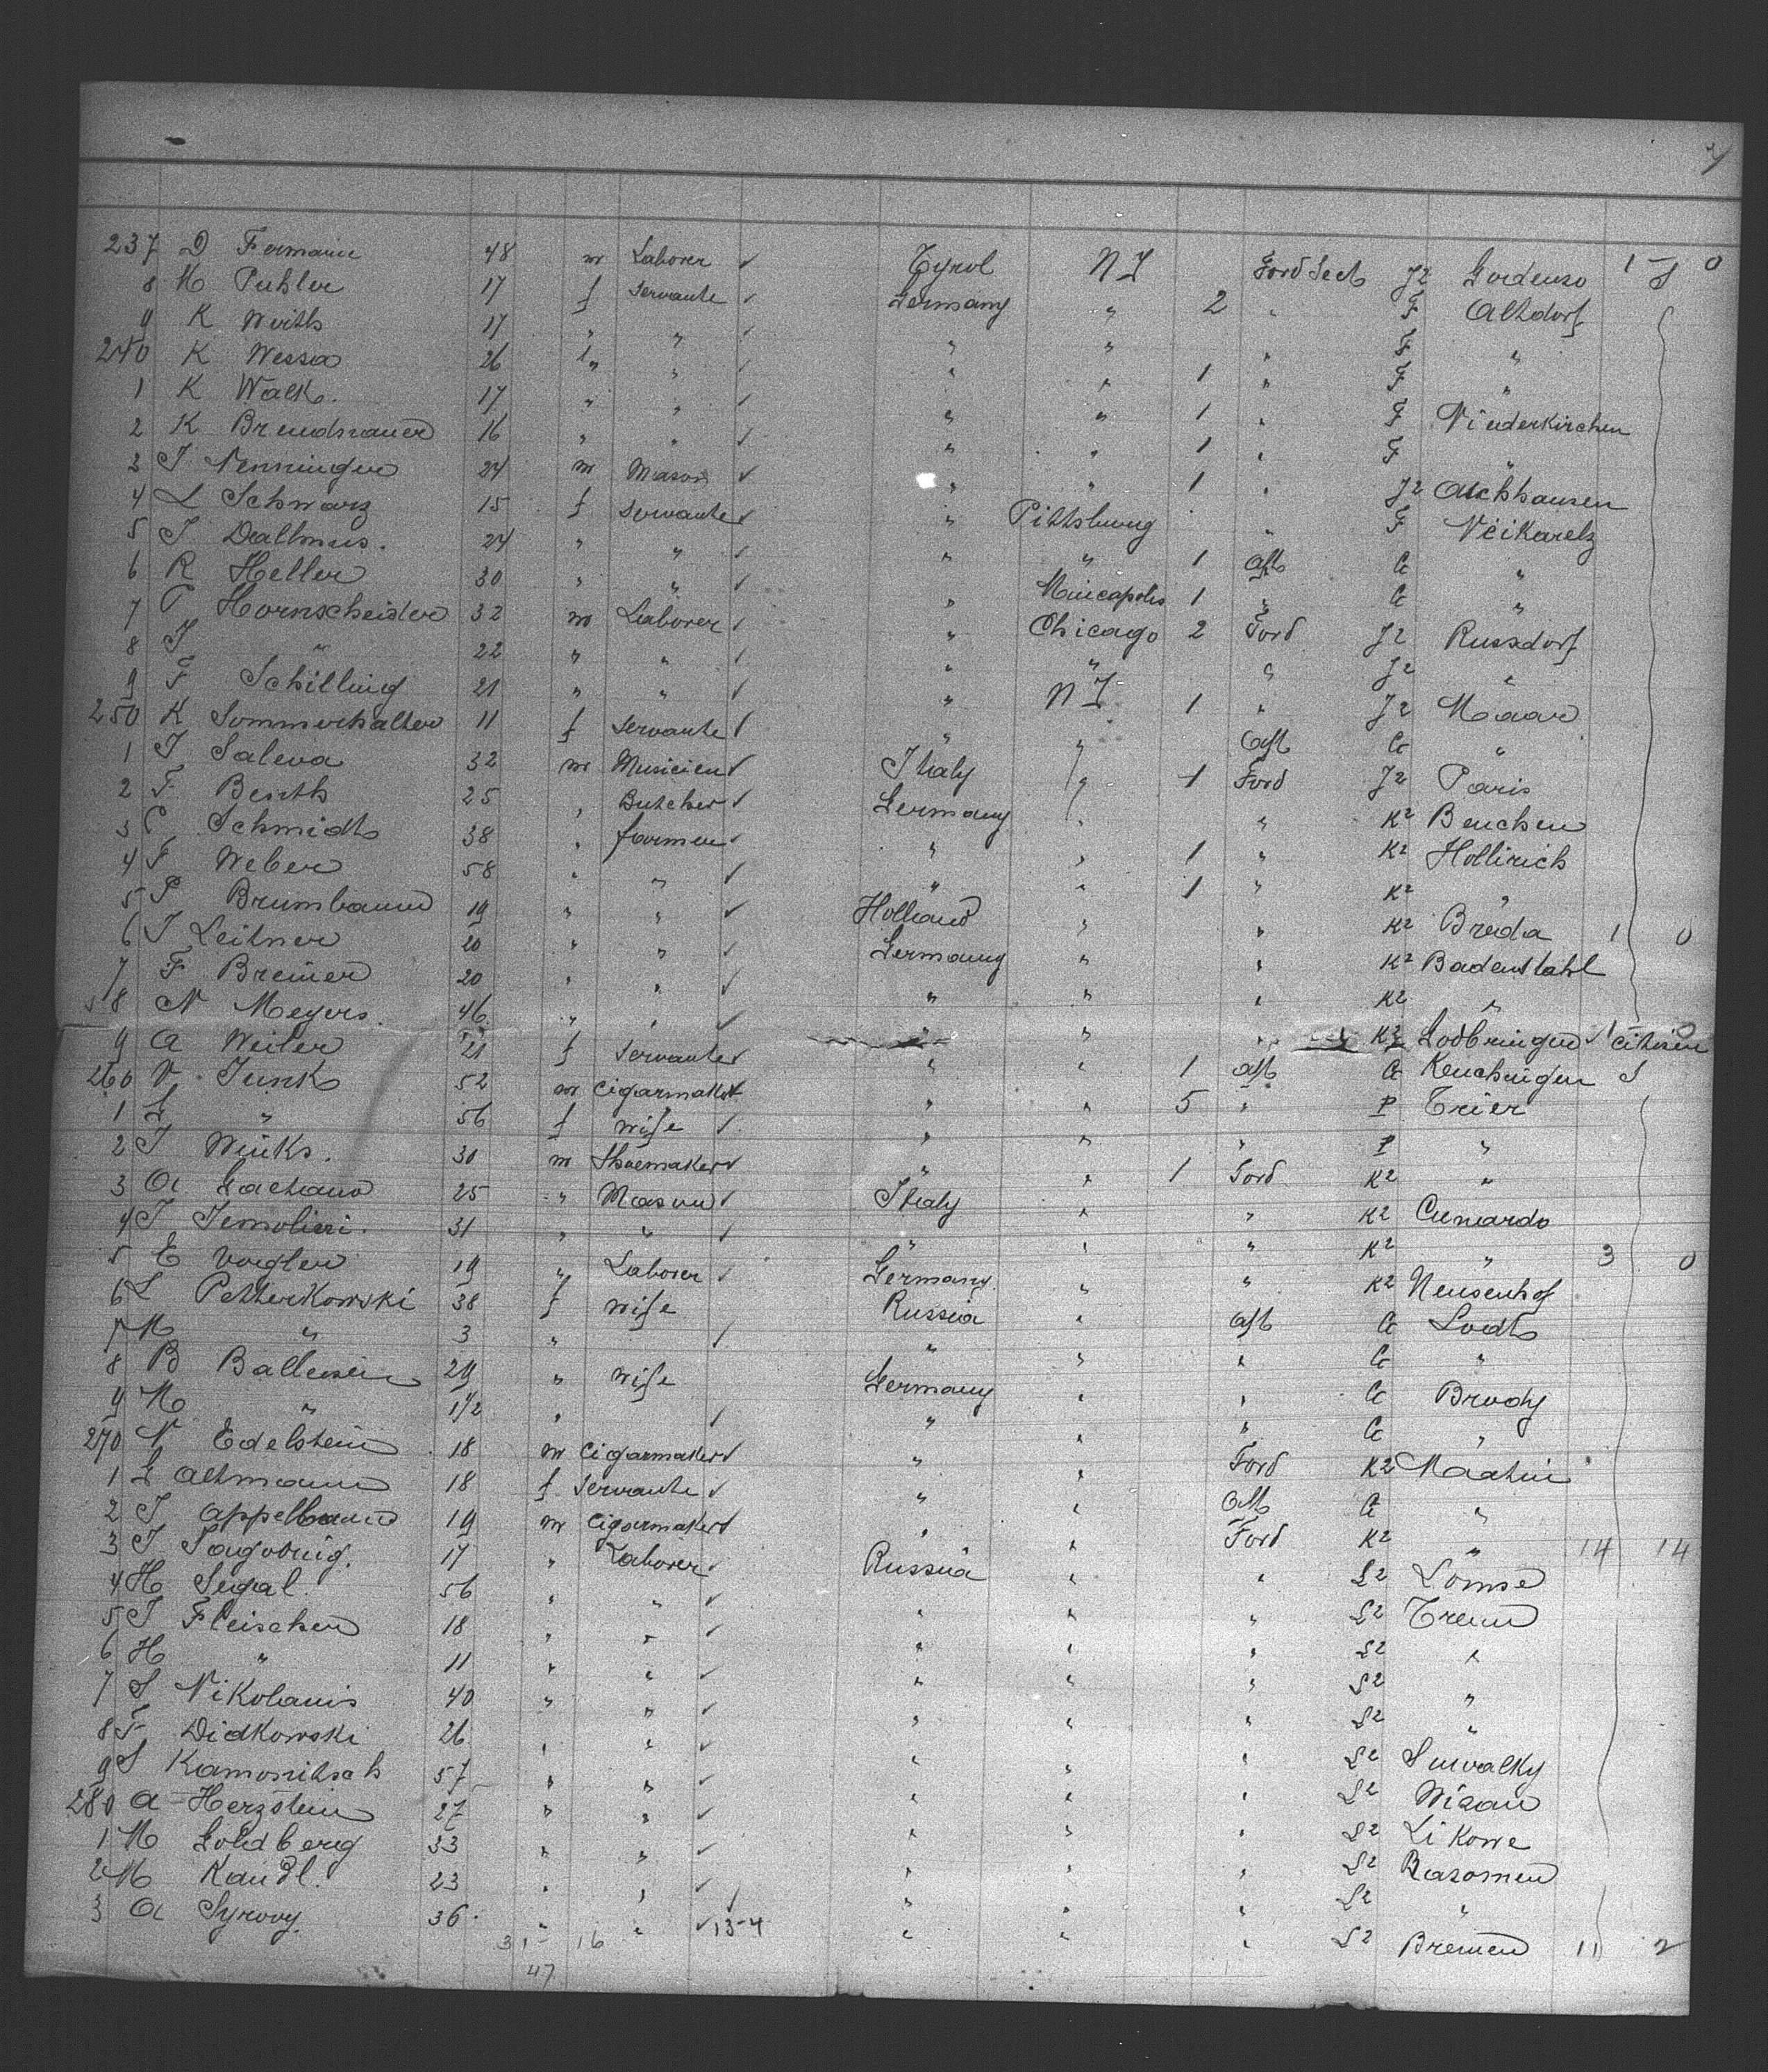 237 D Fermarin 48 m Laborer ✓ Tyrol N Y Ford Sect J2 Gordenso 1 - S 0
8 M Puhler 17 f Servante ✓ Germany " 2 " F Altdorf
9 K Weith 17 " " ✓ " " " F "
240 K Wessa 26 " " ✓ " " 1 " F "
1 K Walk. 17 " " ✓ " " 1 " F Niederkirchen
2 K Brendnauer 16 " " ✓ " " 1 " F "
2 J Nenninger 24 m Mason ✓ " " 1 " J2 Aschhausen
4 L Schwarz 15 f Servante ✓ " Pittsburg " F Neikarelz
5 J Dallmus. 24 " " ✓ " " 1 Aft G "
6 R Heller 30 " " ✓ " Mineapolis 1 " G "
7 P Hornscheider 32 m Laborer ✓ " Chicago 2 Ford J2 Russdorf
8 J " 22 " " ✓ " " " J2 "
9 F Schilling 21 " " ✓ " N Y 1 " J2 Maar
250 K Sommerhalter 11 f Servante ✓ " " Aft G "
1 J Saleva 32 m Musicien ✓ Italy " 1 Ford J2 Paris
2 F Benth 25 " Butcher ✓ Germany " " K2 Benchen
3 P Schmidt 38 " farmer ✓ " " 1 " K2 Hollirich
4 F Weber 58 " " ✓ " " 1 " K2 "
5 P Brumbaum 19 " " ✓ Holland " " K2 Breda 1 0
6 J Leitner 20 " " ✓ Germany " " K2 Badenstahl
7 F Breiner 20 " " ✓ " " " K2 "
58 N Meyers. 46. " " ✓ " " " K2 Lodbringen 1 - 0 citisen
9 A Weiler 21 f Servante ✓ " " 1 Aft G Kenchingen S
260 V Junk 52 m Cigarmaker ✓ " " 5 " P Trier
1 L " 56 f wife ✓ " " " P "
2 J Winks. 30 m Shoemaker ✓ " " 1 Ford K2 "
3 A Gaetano 25 " Mason ✓ Italy " " K2 Cunardo
4 J Jemolieri. 31 " " ✓ " " " K2 " 3 0
5 E Vogler 19 " Laborer ✓ Germany " " K2 Neusenhof
6 L Petterkowski 38 f wife Russia " Aft G Lodt
7 M " 3 " ✓ " " " G "
8 B Balleisen 29 " wife Germany " " G Brody
9 M " 1/2 " ✓ " " " G "
270 N Edelstein 18 m Cigarmaker ✓ " " Ford K2 Maatin
1 L Altmann 18 f Servante ✓ " " Aft G "
2 J Appelbaum 19 m Cigarmaker ✓ " " Ford K2 " 14 14
3 J Tagotnig. 17 " Laborer ✓ Russia " " L2 Lomse
4 H Segal. 56 " " ✓ " " " L2 Trenn
5 J Fleischer 18 " " ✓ " " " L2 "
6 H " 11 " " ✓ " " " L2 "
7 S Nikolanis 40 " " ✓ " " " L2 "
8 F Didkowski 26 " " ✓ " " " L2 Suwalky
9 S Kamonitsch 57 " " ✓ " " " L2 Wisau
280 A Herzstein 27 " " ✓ " " " L2 Likowe
1 M Goldberg 33 " " ✓ " " " L2 Rasomen
2 M Kandl. 23 " " ✓ " " " L2 "
3 A Syrovy. 36. " " ✓ 13-4 " " " L2 Bremen 11 2
31 - 16
47